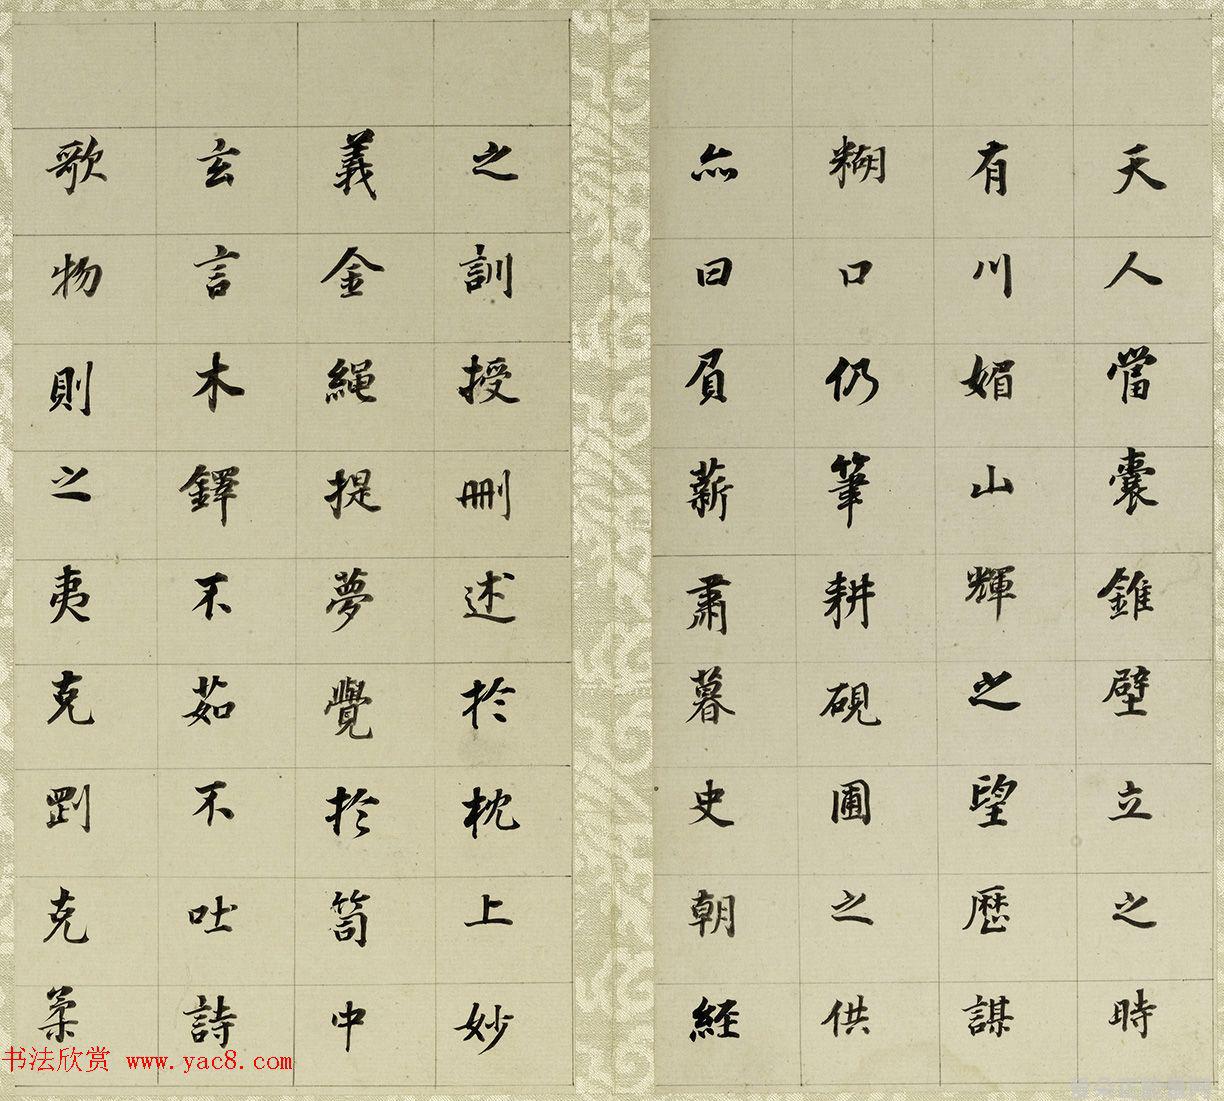 天人當囊錐壁立之時
有川媚山輝之望歷謀
糊口仍筆耕硯圃之供
亦曰眉薪肅暮史朝經
之訓授刪述於枕上妙
義金繩提夢覺於笥中
玄言木鐸不茹不吐詩
歌物則之夷克剛克柔
书法欣赏 www.yac8.com